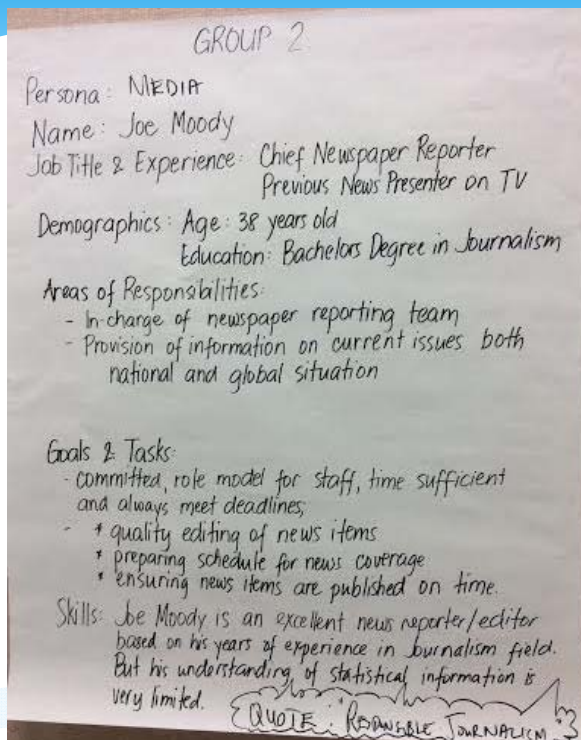 GROUP 2
Persona: MEDIA
Name: Joe Moody
Job Title & Experience: Chief Newspaper Reporter
Previous News Presenter on TV
Demographics: Age: 38 years old
Education: Bachelors Degree in Journalism
Areas of Responsibilities:
- In-charge of newspaper reporting team
- Provision of information on current issues both
national and global situation
Goals & Tasks:
- committed, role model for staff, time sufficient
and always meet deadlines;
- * quality editing of news items
* preparing schedule for news coverage
* ensuring news items are published on time.
Skills: Joe Moody is an excellent news reporter/editor
based on his years of experience in Journalism field.
But his understanding of statistical information is
very limited.
QUOTE: "RESPONSIBLE JOURNALISM"